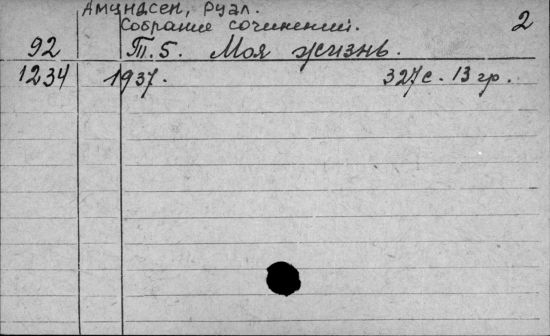 Амундсен, Руал.
Собрание сочинений. 2
92 Т. 5. Моя жизнь.
1234 1937. 327с. 13 гр.